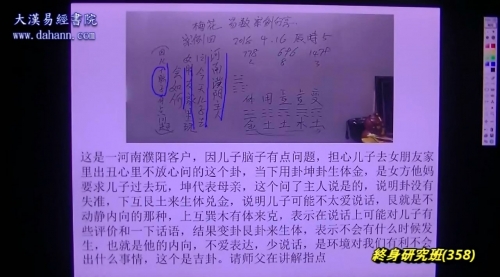 大漢易經書院
www.dahann.com
梅花
2016.4.16
178 696 1478
体 用 互 互 变
金 土 木 土
这是一河南濮阳客户，因儿子脑子有点问题，担心儿子去女朋友家
里出丑心里不放心问的这个卦，当下用卦坤卦生体金，是女方他妈
要求儿子过去玩，坤代表母亲，这个问了主人说是的，说明卦没有
失准，下互艮土来生体兑金，说明儿子可能不太爱说话，艮就是不
动静内向的那种，上互巽木有体来克，表示在说话上可能对儿子有
些评价和一下话语，结果变卦艮卦来生体，表示不会有什么时候发
生，也就是他的内向，不爱表达，少说话，是环境对我们有利不会
出什么事情，这个是吉卦。请师父在讲解指点
終身研究班(358)